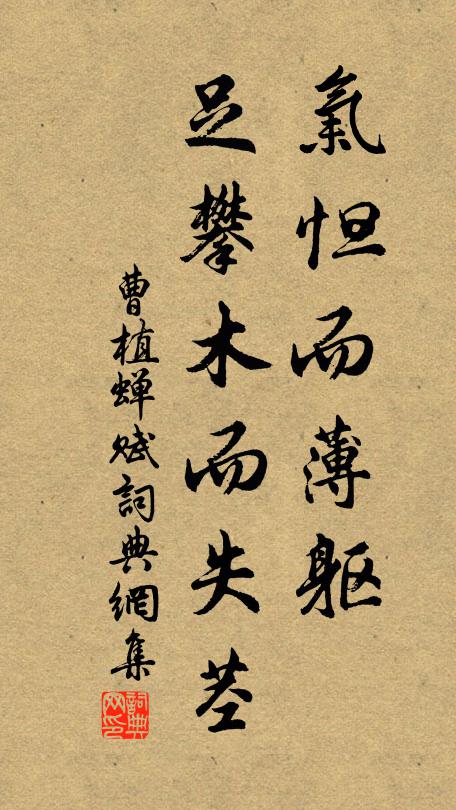 氣怛而薄軀
足攀木而失莖
曹植蝉赋詞典網集
詞典网印